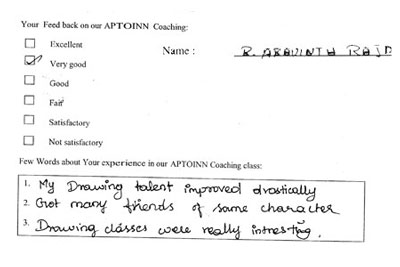 Your Feed back on our APTOINN Coaching:
Excellent
Name : R. ARAVINTH RAJ
Very good
Good
Fair
Satisfactory
Not satisfactory
Few Words about Your experience in our APTOINN Coaching class:
1. My Drawing talent improved drastically
2. Got many friends of same character
3. Drawing classes were really intresting.